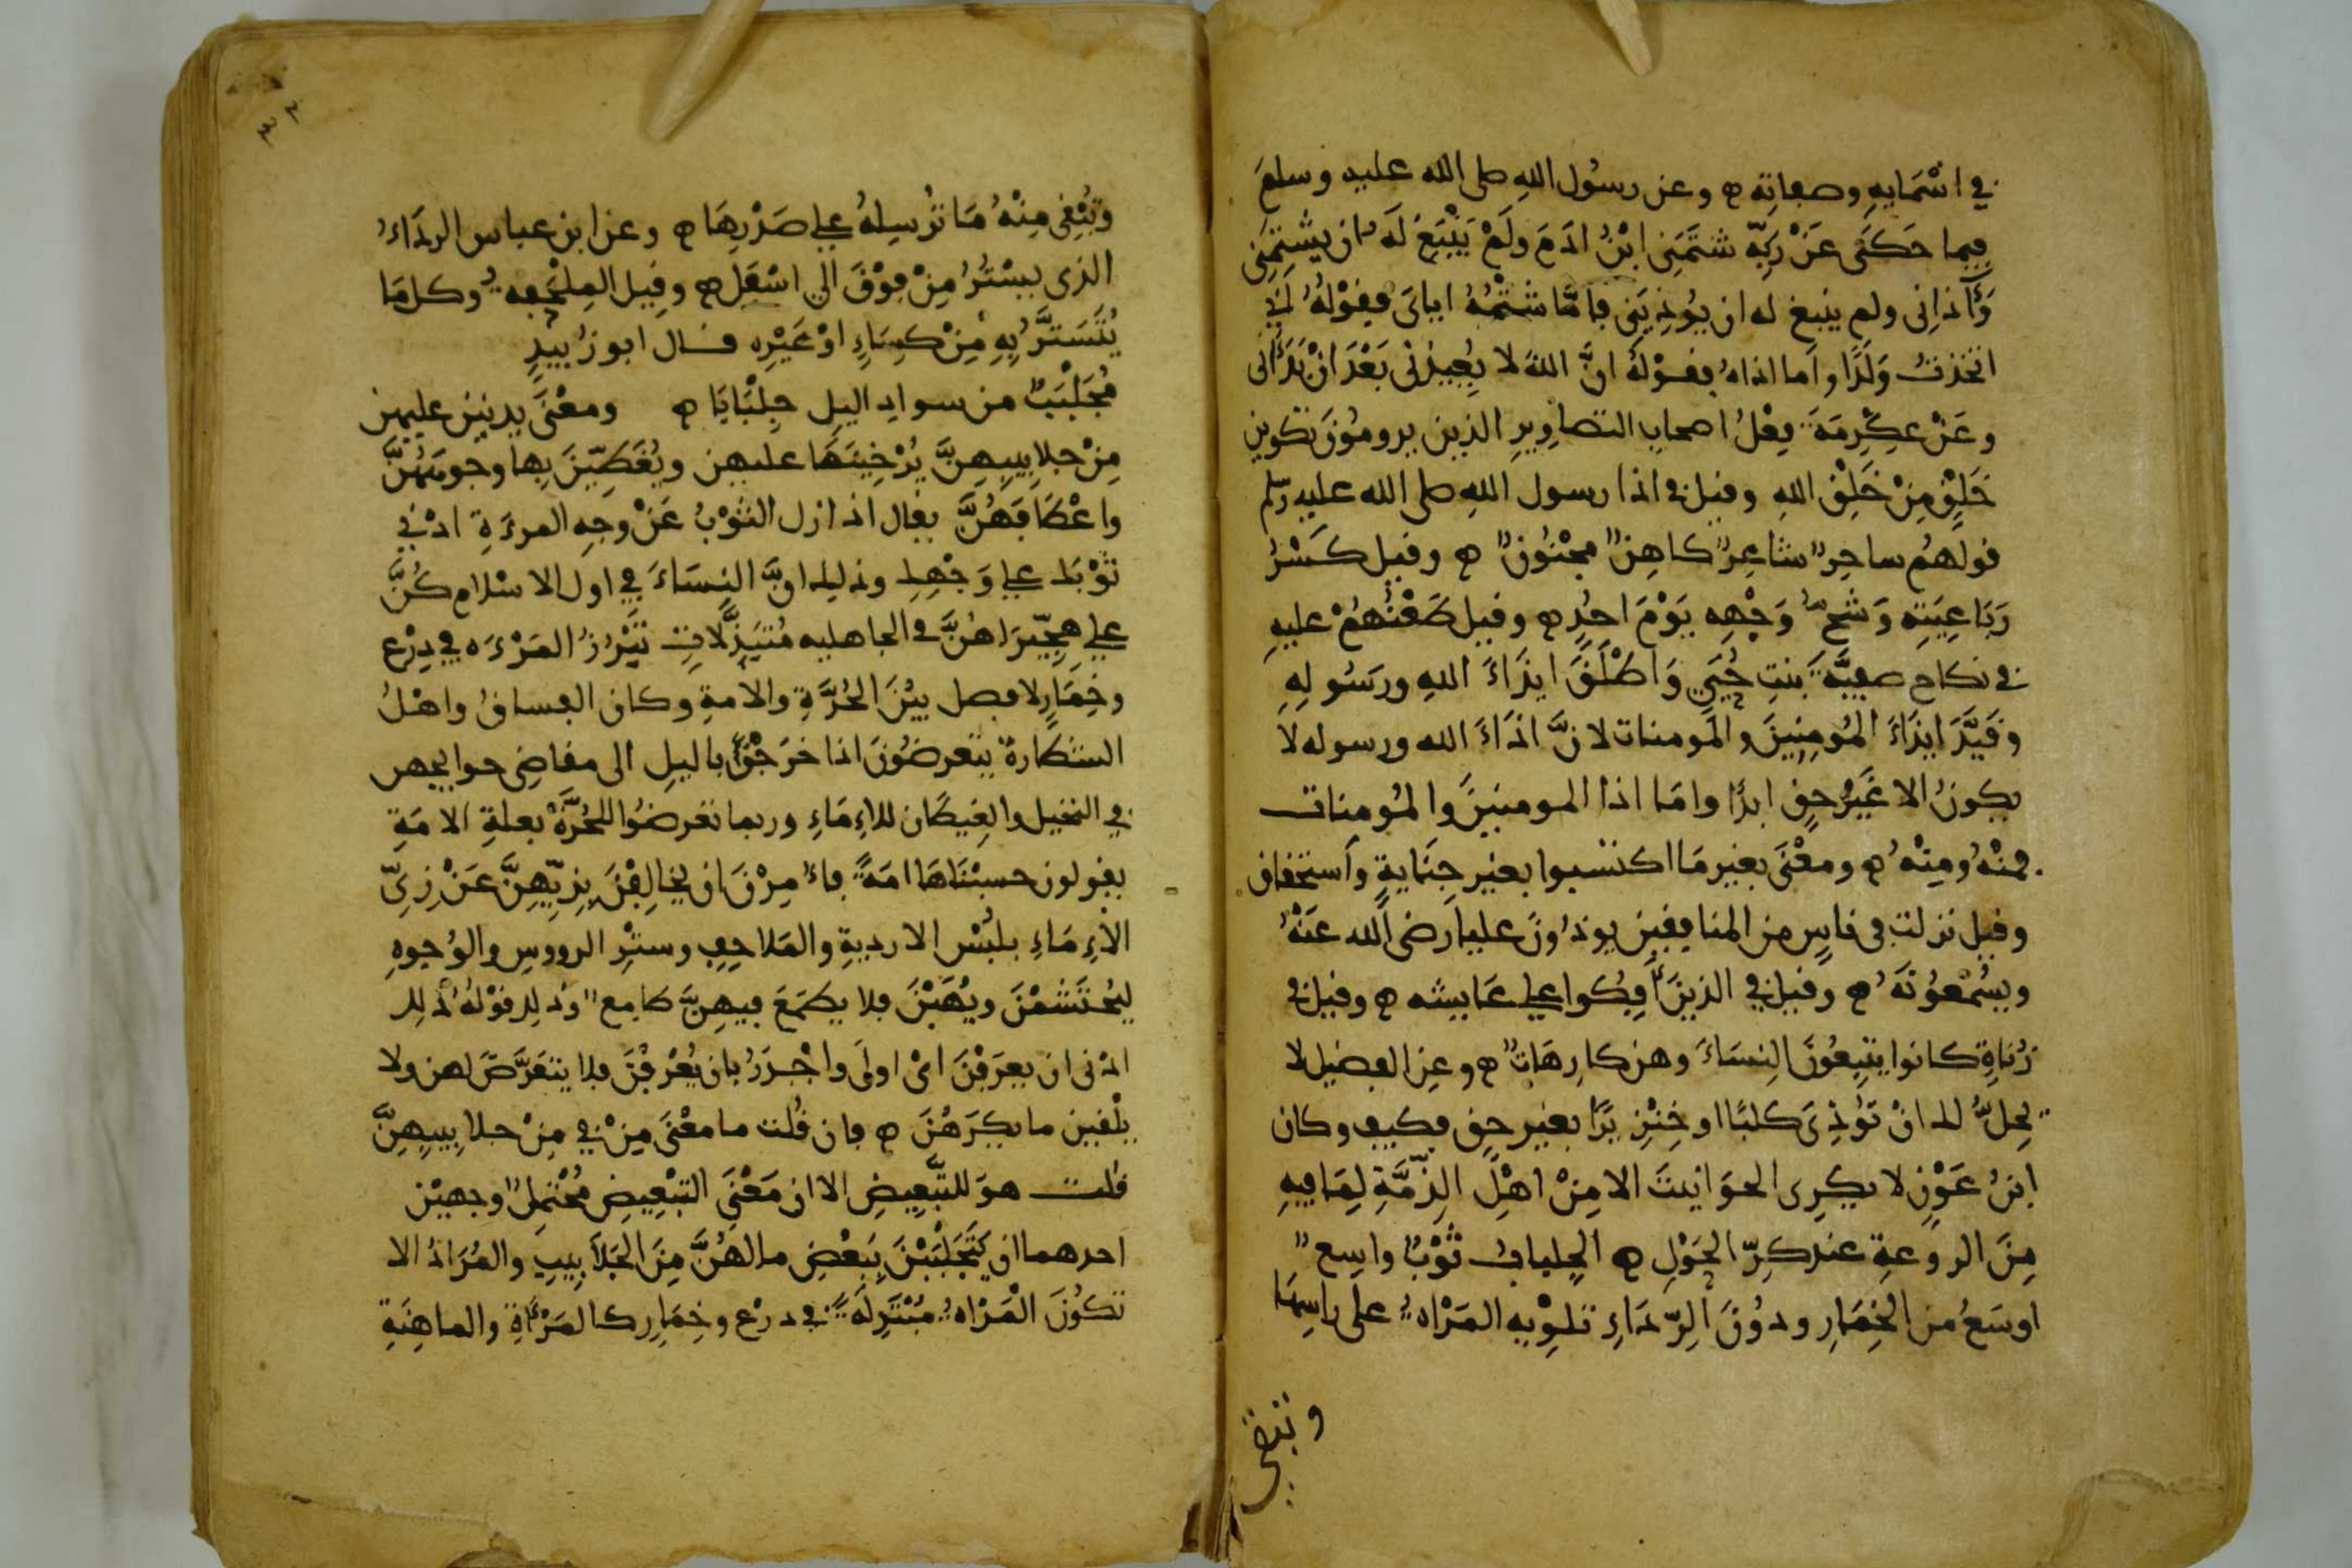 في اسْمَايهِ وصفاتِه ه وعن رسُول اللهِ صلى الله عليه وسلمَ
فيما حَكَى عَنْ رَبِّهِ شتَمَنِى ابْنُ ادَمَ ولَمْ يَنْبَغِ لَهُ ان يشْتِمَنِى
وَآذانِى ولم ينبغ له ان يُوذِيَنِى فامَّا شتْمُهُ اياىَ فقوْلهُ اِنِي
اتخذتُ وَلَدًا واَما اذاهُ فقوْلهُ انَّ اللهَ لا يُعِيدُنى بَعْدَ انْ بَدَأنى
وعَنْ عِكْرِمَةَ فِعْلُ اصحابِ التصاوِيرِ الذين يرومُونَ تكوين
خَلْقٍ مِنْ خَلْقِ اللهِ وقيل في اذا رسول اللهِ صلى الله عليه وسلم
قولهُم ساحِرٌ شاعِرٌ كاهِنٌ مجْنُونٌ ه وقيل كَسْرُ
رَبَاعِيَتِهِ وَشَجُّ وَجْهِه يَوْمَ احُدٍ ه وقيل طَعْنُهُمْ عليهِ
في نكاح صفِيَّةَ بنتِ حُيَيٍ وَاطْلَقَ ايذَاءَ اللهِ ورسُولهِ
وقَيَّدَ ايذَاءَ المُومِنِينَ والمومنات لانَّ اذَاءَ الله ورسوله لا
يكونُ الا غَيْرَ حقٍ ابدًا وامَا اذا المومنينَ والمُومنات
فمنْهُ ومِنْهُ ه ومعْنَى بغيرِ مَا اكتسبوا بغيْرِ جِنَايةٍ واَستحْقاق
وقيل نزلت في ناسٍ من المنافِقين يوذُونَ عليا رَضى اَلله عَنْهُ
ويسُمْعُونَهُ ه وقيل في الذينَ اَفِكُوا على عَايشه ه وقيل في
زُناةٍ كانوا يتبِعُونَ النِسَاءَ وهن كارِهَاتٌ ه وعن الفضيل لا
يحِلُّ لك انْ تَوذِىَ كلبًا او خِنْزِيرًا بغير حقٍ فكيف وكان
ابنُ عَوْنٍ لا يكرِى الحوَانيتَ الا مِنْ اهْلِ الذِمَّةِ لِمَا فيهِ
مِنَ الروعةِ عند كِرِّ الحَوْلِ ه الجلبابُ ثَوْبٌ واسِعٌ
اوسَعُ من الخِمَارِ ودُونَ الرِّدَاءِ تلوِيه المَرْاهُ على راسِهَا
وتبقى
وتُبْقِى مِنْهُ مَا تُرْسِلهُ على صَدْرِهَا ه وعن ابن عباس الردَاءُ
الذى يسْتُرُ مِنْ فوْقَ الى اسْفَل ه وقيل المِلْحَفه وكل مَا
يُتَسَتَّرُ بِهِ مِنْ كِسَاءٍ اوْ غَيْرِه قال ابو زُبيدٍ
مُجَلْبَبٌ من سواد اليل جِلْبَابَا ه ومعْنَى يدنين عليهن
مِنْ جلابِيبِهِنَّ يُرْخِينَهَا عليهن ويُغَطِّينَ بها وجوهَهُنَّ
واعْطَافَهُنَّ يقال اذا زل الثوْبُ عَنْ وجهِ المرءَةِ ادْنِي
ثوْبَك على وَجْهِك وذلك انَّ النِسَاءَ في اول الاسْلام كُنَّ
على هِجِّيرَاهُنَّ في الجاهليه مُتَبَذِّلَاتٍ تَبْرُزُ المَرْءَه في دِرْعٍ
وخِمَارٍ لا فصل بيْنَ الحُرَّةِ والامةِ وكان الفساقُ واهْلُ
الشطارة يتعرضُونَ اذا خرَجْنَ باليلِ الى مقاضِى حوايجهن
في النخيل والغِيطَان للاِمَاءِ وربما تعَرضُوا للحُرَّةِ بعلةِ الامَةِ
يقولون حسبْنَاهَا امَةً فامِرْنَ ان يخالِفْنَ بِزِيِّهِنَّ عَنْ زِىِّ
الاِمَاءِ بلبْسِ الارديةِ والملاحِفِ وستْرِ الرووسِ والوُجوهِ
ليُحْتَشَمْنَ ويُهَبْنَ فلا يطمَعَ فيهِنَّ طامع وذلك قوْلهُ ذلك
ادْنى ان يعرَفْنَ اىْ اولَى واجْدَرُ بان يُعْرفْنَ فلا يتعَرَّضَ لهن ولا
يلْقين ما يكرَهْنَ ه فان قُلت ما معْنَى مِنْ في مِنْ جلابِيبِهِنَّ
قلت هوَ للتَّبعِيضِ الا ان مَعْنَى التبْعِيضِ مُحْتمِلٌ وجهيْن
احدهما ان يَتَجَلْبَبْنَ بِبَعْضِ مالهُنَّ مِنَ الجَلَابِيبِ والمُرَادُ الا
تكُونَ الْمَرْاه مُبْتَذِلَةً في درْع وخِمَارٍ كالمَرْاةِ والماهِنَةِ